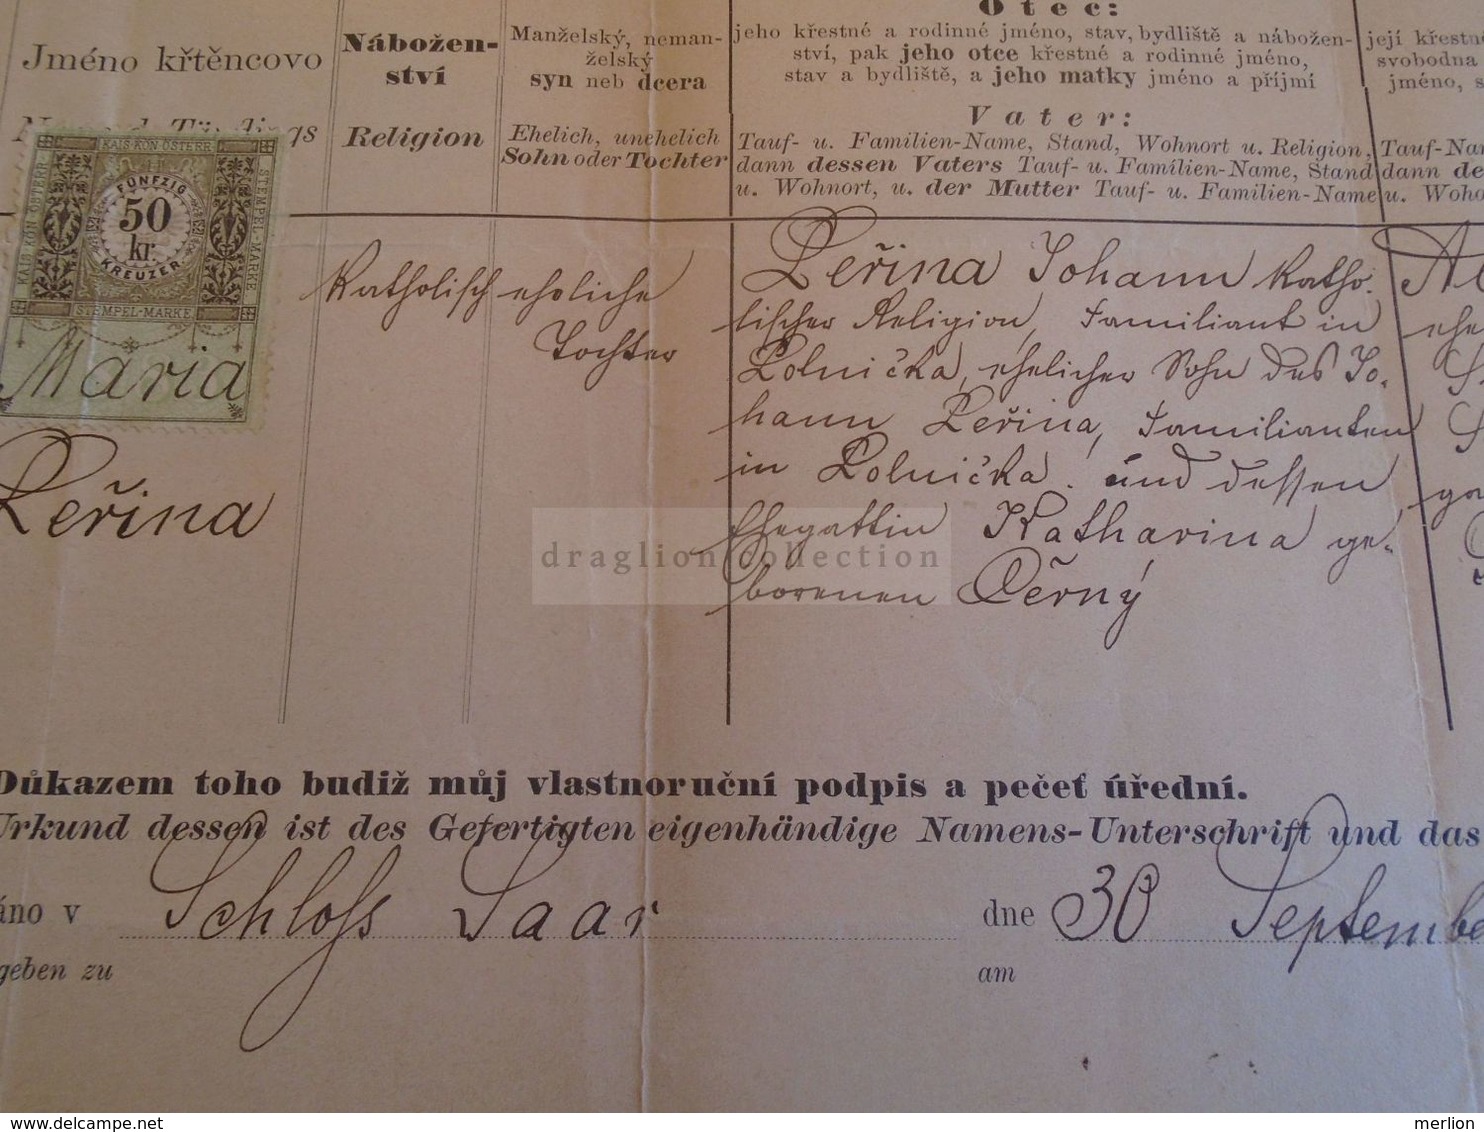 Jméno křtěncovo
Nábožen-
ství
Religion
Manželský, neman-
želský
syn neb dcera
Ehelich, unehelich
Sohn oder Tochter
Otec:
jeho křestné a rodinné jméno, stav, bydliště a nábožen-
ství, pak jeho otce křestné a rodinné jméno,
stav a bydliště, a jeho matky jméno a příjmí
Vater:
Tauf- u. Familien-Name, Stand, Wohnort u. Religion,
dann dessen Vaters Tauf- u. Familien-Name, Stand
u. Wohnort, u. der Mutter Tauf- u. Familien-Name
její křestné
svobodna
jméno, s
Tauf-Na
dann de
u. Woho
KAIS. KÖN. ÖSTERR.
STEMPEL-MARKE
FÜNFZIG
50
kr.
KREUZER
STEMPEL-MARKE
KAIS. KÖN. ÖSTERR.
Maria
Peřina
Katholisch
eheliche
Tochter
Peřina Johann Katho-
lischer Religion, Familiant in
Polnička, ehelicher Sohn des Jo-
hann Peřina, Familianten
in Polnička und dessen
Ehegattin Katharina ge-
borenen Černý
draglion collection
Důkazem toho budiž můj vlastnoruční podpis a pečeť úřední.
Urkund dessen ist des Gefertigten eigenhändige Namens-Unterschrift und das
áno v Schloß Saar dne 30 Septembe
geben zu am
www.delcampe.net
merlion